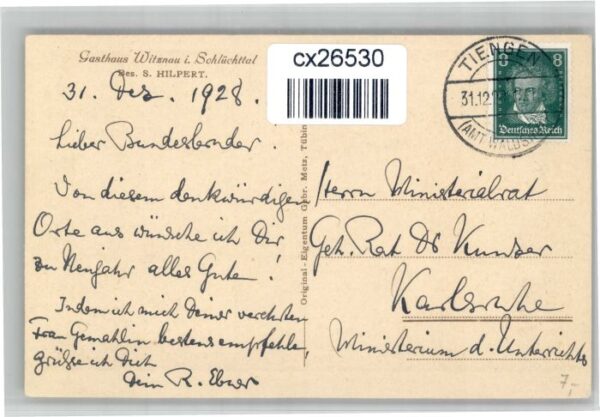 Gasthaus Witznau i. Schlüchttal
Bes. S. HILPERT.
cx26530
31. Dez. 1928.
Lieber Bundesbruder.
Von diesem denkwürdigen
Orte aus wünsche ich Dir
zu Neujahr alles Gute!
Indem ich mich Deiner verehrten
Frau Gemahlin bestens empfehle,
grüsse ich Dich
Dein R. Ebner
Original-Eigentum Gebr. Metz, Tübin
TIENGEN
31.12.
(AMT WALDS
8 8
Deutsches Reich
Herrn Ministerialrat
Geh. Rat Dr
Karlsruhe
Ministerium d. Unterrichts
7,-